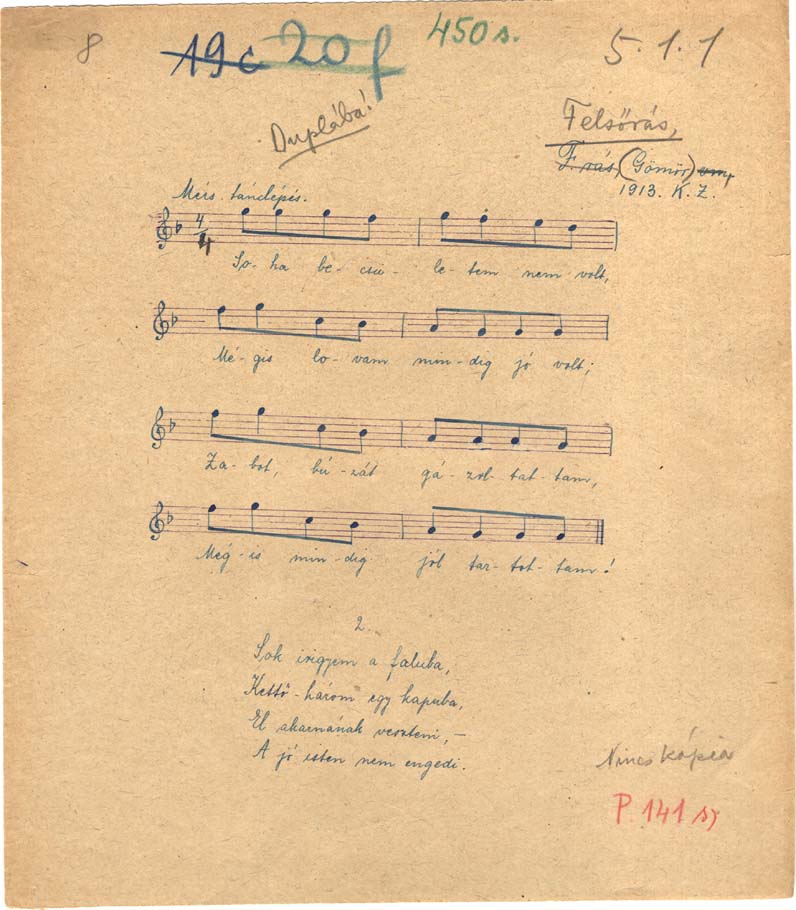 8 19c 20f 450 s. 5.1.1
Duplába!
Felsőrás,
F. rás (Gömör) vm,
1913. K. Z.
Mérs. tánclépés.
4/4
So-ha be-csü-le-tem nem volt,
Mé-gis lo-vam min-dig jó volt;
Za-bot, bú-zát gá-zol-tat-tam,
Még-is min-dig jól tar-tot-tam!
2.
Sok irigyem a faluba,
Kettő-három egy kapuba,
El akarnának veszteni, –
A jó isten nem engedi.
Nincs kópia
P. 141